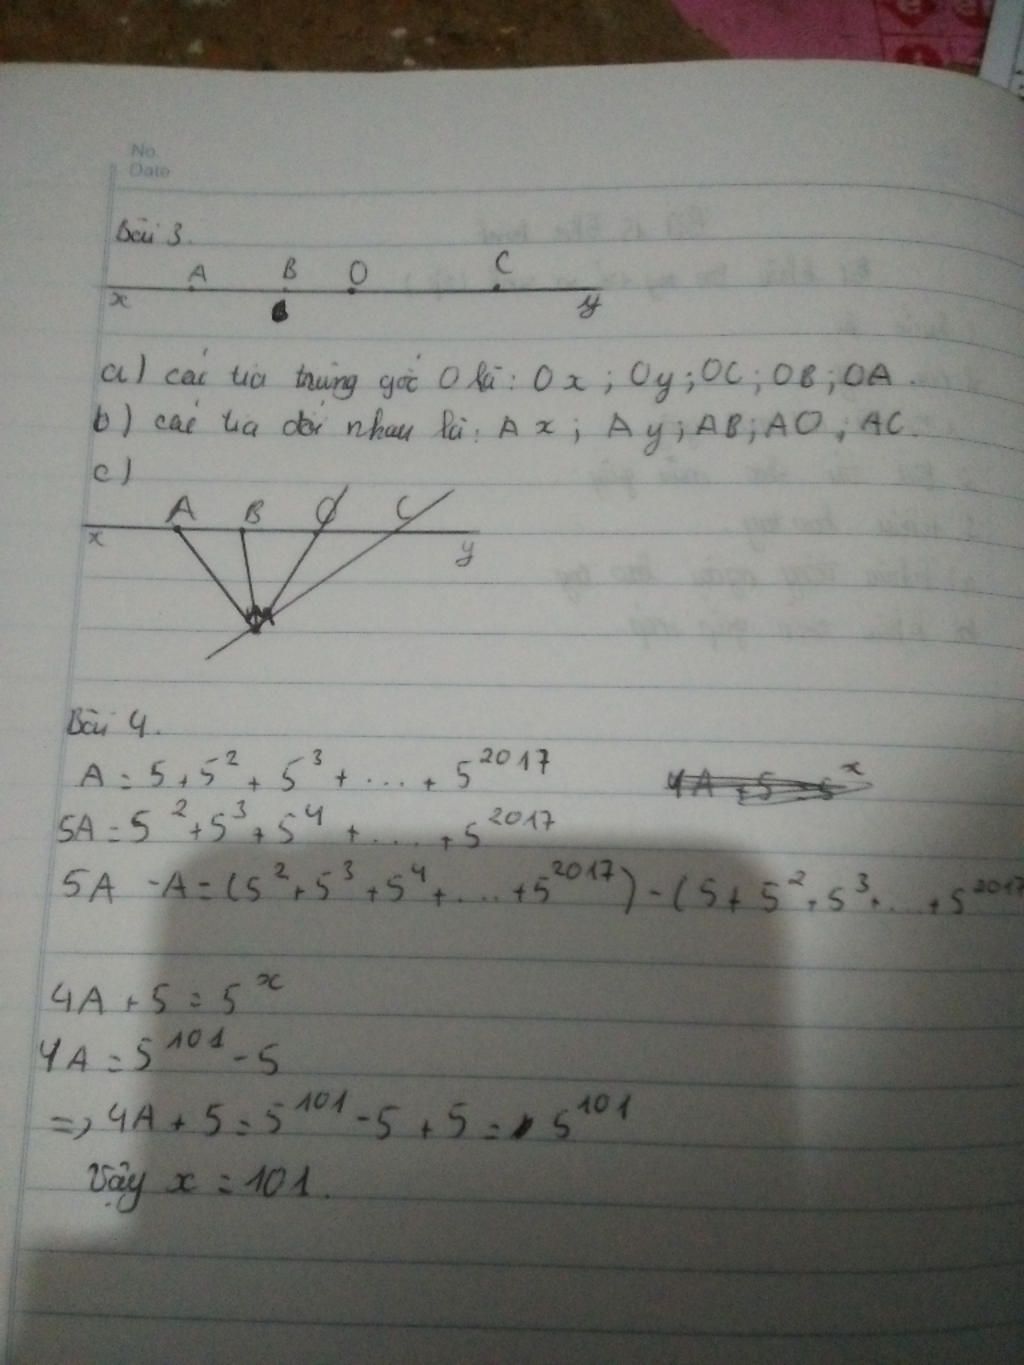 No.
Date
Bài 3.
A B O C
x y
a) các tia trùng gốc O là: Ox ; Oy ; OC ; OB ; OA .
b) các tia đối nhau là: Ax ; Ay ; AB ; AO ; AC.
c)
A B O C
x y
Bài 4.
A = 5 + 5² + 5³ + .... + 5²⁰¹⁷
5A = 5² + 5³ + 5⁴ + .... + 5²⁰¹⁷
5A - A = (5² + 5³ + 5⁴ + .... + 5²⁰¹⁷) - (5 + 5² + 5³ + ... + 5²⁰¹⁷
4A + 5 = 5ˣ
4A = 5¹⁰¹ - 5
=> 4A + 5 = 5¹⁰¹ - 5 + 5 = 5¹⁰¹
Vậy x = 101.